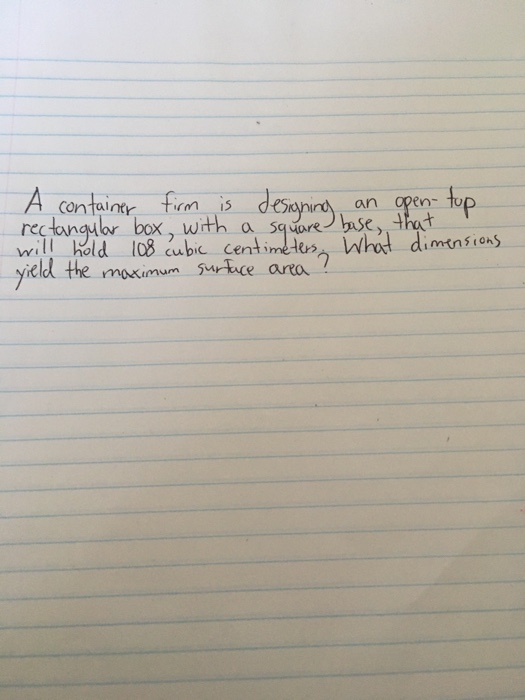 A container firm is designing an open-top
rectangular box, with a square base, that
will hold 108 cubic centimeters. What dimensions
yield the maximum surface area?